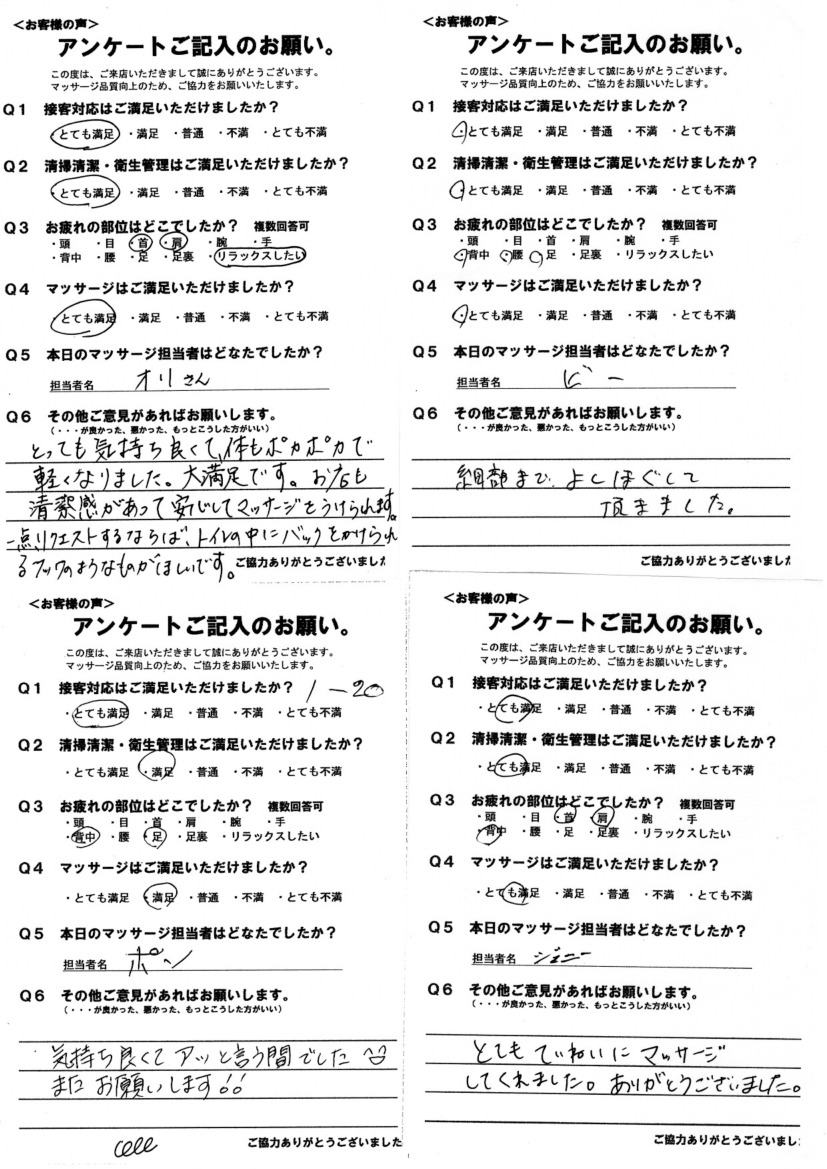 ＜お客様の声＞
アンケートご記入のお願い。
この度は、ご来店いただきまして誠にありがとうございます。
マッサージ品質向上のため、ご協力をお願いいたします。
Q1 接客対応はご満足いただけましたか？
・とても満足 ・満足 ・普通 ・不満 ・とても不満
Q2 清掃清潔・衛生管理はご満足いただけましたか？
・とても満足 ・満足 ・普通 ・不満 ・とても不満
Q3 お疲れの部位はどこでしたか？ 複数回答可
・頭 ・目 ・首 ・肩 ・腕 ・手
・背中 ・腰 ・足 ・足裏 ・リラックスしたい
Q4 マッサージはご満足いただけましたか？
・とても満足 ・満足 ・普通 ・不満 ・とても不満
Q5 本日のマッサージ担当者はどなたでしたか？
担当者名 オリさん
Q6 その他ご意見があればお願いします。
（・・・が良かった、悪かった、もっとこうした方がいい）
とっても気持ち良くて、体もポカポカで
軽くなりました。大満足です。お店も
清潔感があって安心してマッサージをうけられます。
一点リクエストするならば、トイレの中にバックをかけられ
るフックのようなものがほしいです。
ご協力ありがとうございました
＜お客様の声＞
アンケートご記入のお願い。
この度は、ご来店いただきまして誠にありがとうございます。
マッサージ品質向上のため、ご協力をお願いいたします。
Q1 接客対応はご満足いただけましたか？
・とても満足 ・満足 ・普通 ・不満 ・とても不満
Q2 清掃清潔・衛生管理はご満足いただけましたか？
・とても満足 ・満足 ・普通 ・不満 ・とても不満
Q3 お疲れの部位はどこでしたか？ 複数回答可
・頭 ・目 ・首 ・肩 ・腕 ・手
・背中 ・腰 ・足 ・足裏 ・リラックスしたい
Q4 マッサージはご満足いただけましたか？
・とても満足 ・満足 ・普通 ・不満 ・とても不満
Q5 本日のマッサージ担当者はどなたでしたか？
担当者名 ビー
Q6 その他ご意見があればお願いします。
（・・・が良かった、悪かった、もっとこうした方がいい）
細部まで、よくほぐして
頂きました。
ご協力ありがとうございました
＜お客様の声＞
アンケートご記入のお願い。
この度は、ご来店いただきまして誠にありがとうございます。
マッサージ品質向上のため、ご協力をお願いいたします。
Q1 接客対応はご満足いただけましたか？ 1－20
・とても満足 ・満足 ・普通 ・不満 ・とても不満
Q2 清掃清潔・衛生管理はご満足いただけましたか？
・とても満足 ・満足 ・普通 ・不満 ・とても不満
Q3 お疲れの部位はどこでしたか？ 複数回答可
・頭 ・目 ・首 ・肩 ・腕 ・手
・背中 ・腰 ・足 ・足裏 ・リラックスしたい
Q4 マッサージはご満足いただけましたか？
・とても満足 ・満足 ・普通 ・不満 ・とても不満
Q5 本日のマッサージ担当者はどなたでしたか？
担当者名 ポン
Q6 その他ご意見があればお願いします。
（・・・が良かった、悪かった、もっとこうした方がいい）
気持ち良くてアッと言う間でした
またお願いします!!
ご協力ありがとうございました
＜お客様の声＞
アンケートご記入のお願い。
この度は、ご来店いただきまして誠にありがとうございます。
マッサージ品質向上のため、ご協力をお願いいたします。
Q1 接客対応はご満足いただけましたか？
・とても満足 ・満足 ・普通 ・不満 ・とても不満
Q2 清掃清潔・衛生管理はご満足いただけましたか？
・とても満足 ・満足 ・普通 ・不満 ・とても不満
Q3 お疲れの部位はどこでしたか？ 複数回答可
・頭 ・目 ・首 ・肩 ・腕 ・手
・背中 ・腰 ・足 ・足裏 ・リラックスしたい
Q4 マッサージはご満足いただけましたか？
・とても満足 ・満足 ・普通 ・不満 ・とても不満
Q5 本日のマッサージ担当者はどなたでしたか？
担当者名 ジェニー
Q6 その他ご意見があればお願いします。
（・・・が良かった、悪かった、もっとこうした方がいい）
とてもていねいにマッサージ
してくれました。ありがとうございました。
ご協力ありがとうございまし